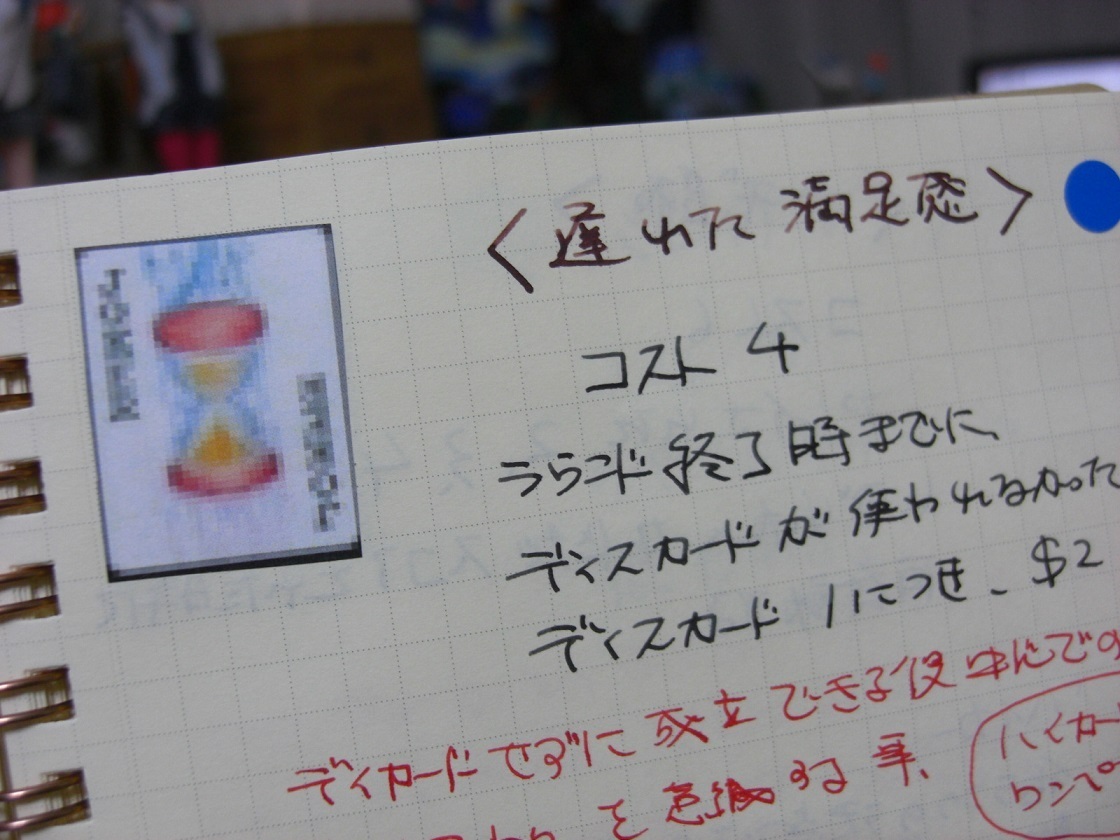 <遅れた満足感>
コスト 4
ラウンド終了時までに、
ディスカードが使われなかった
ディスカード1につき、$2
ディカードせずに成立できる役
を意識する事、
ハイカー
ワンペー